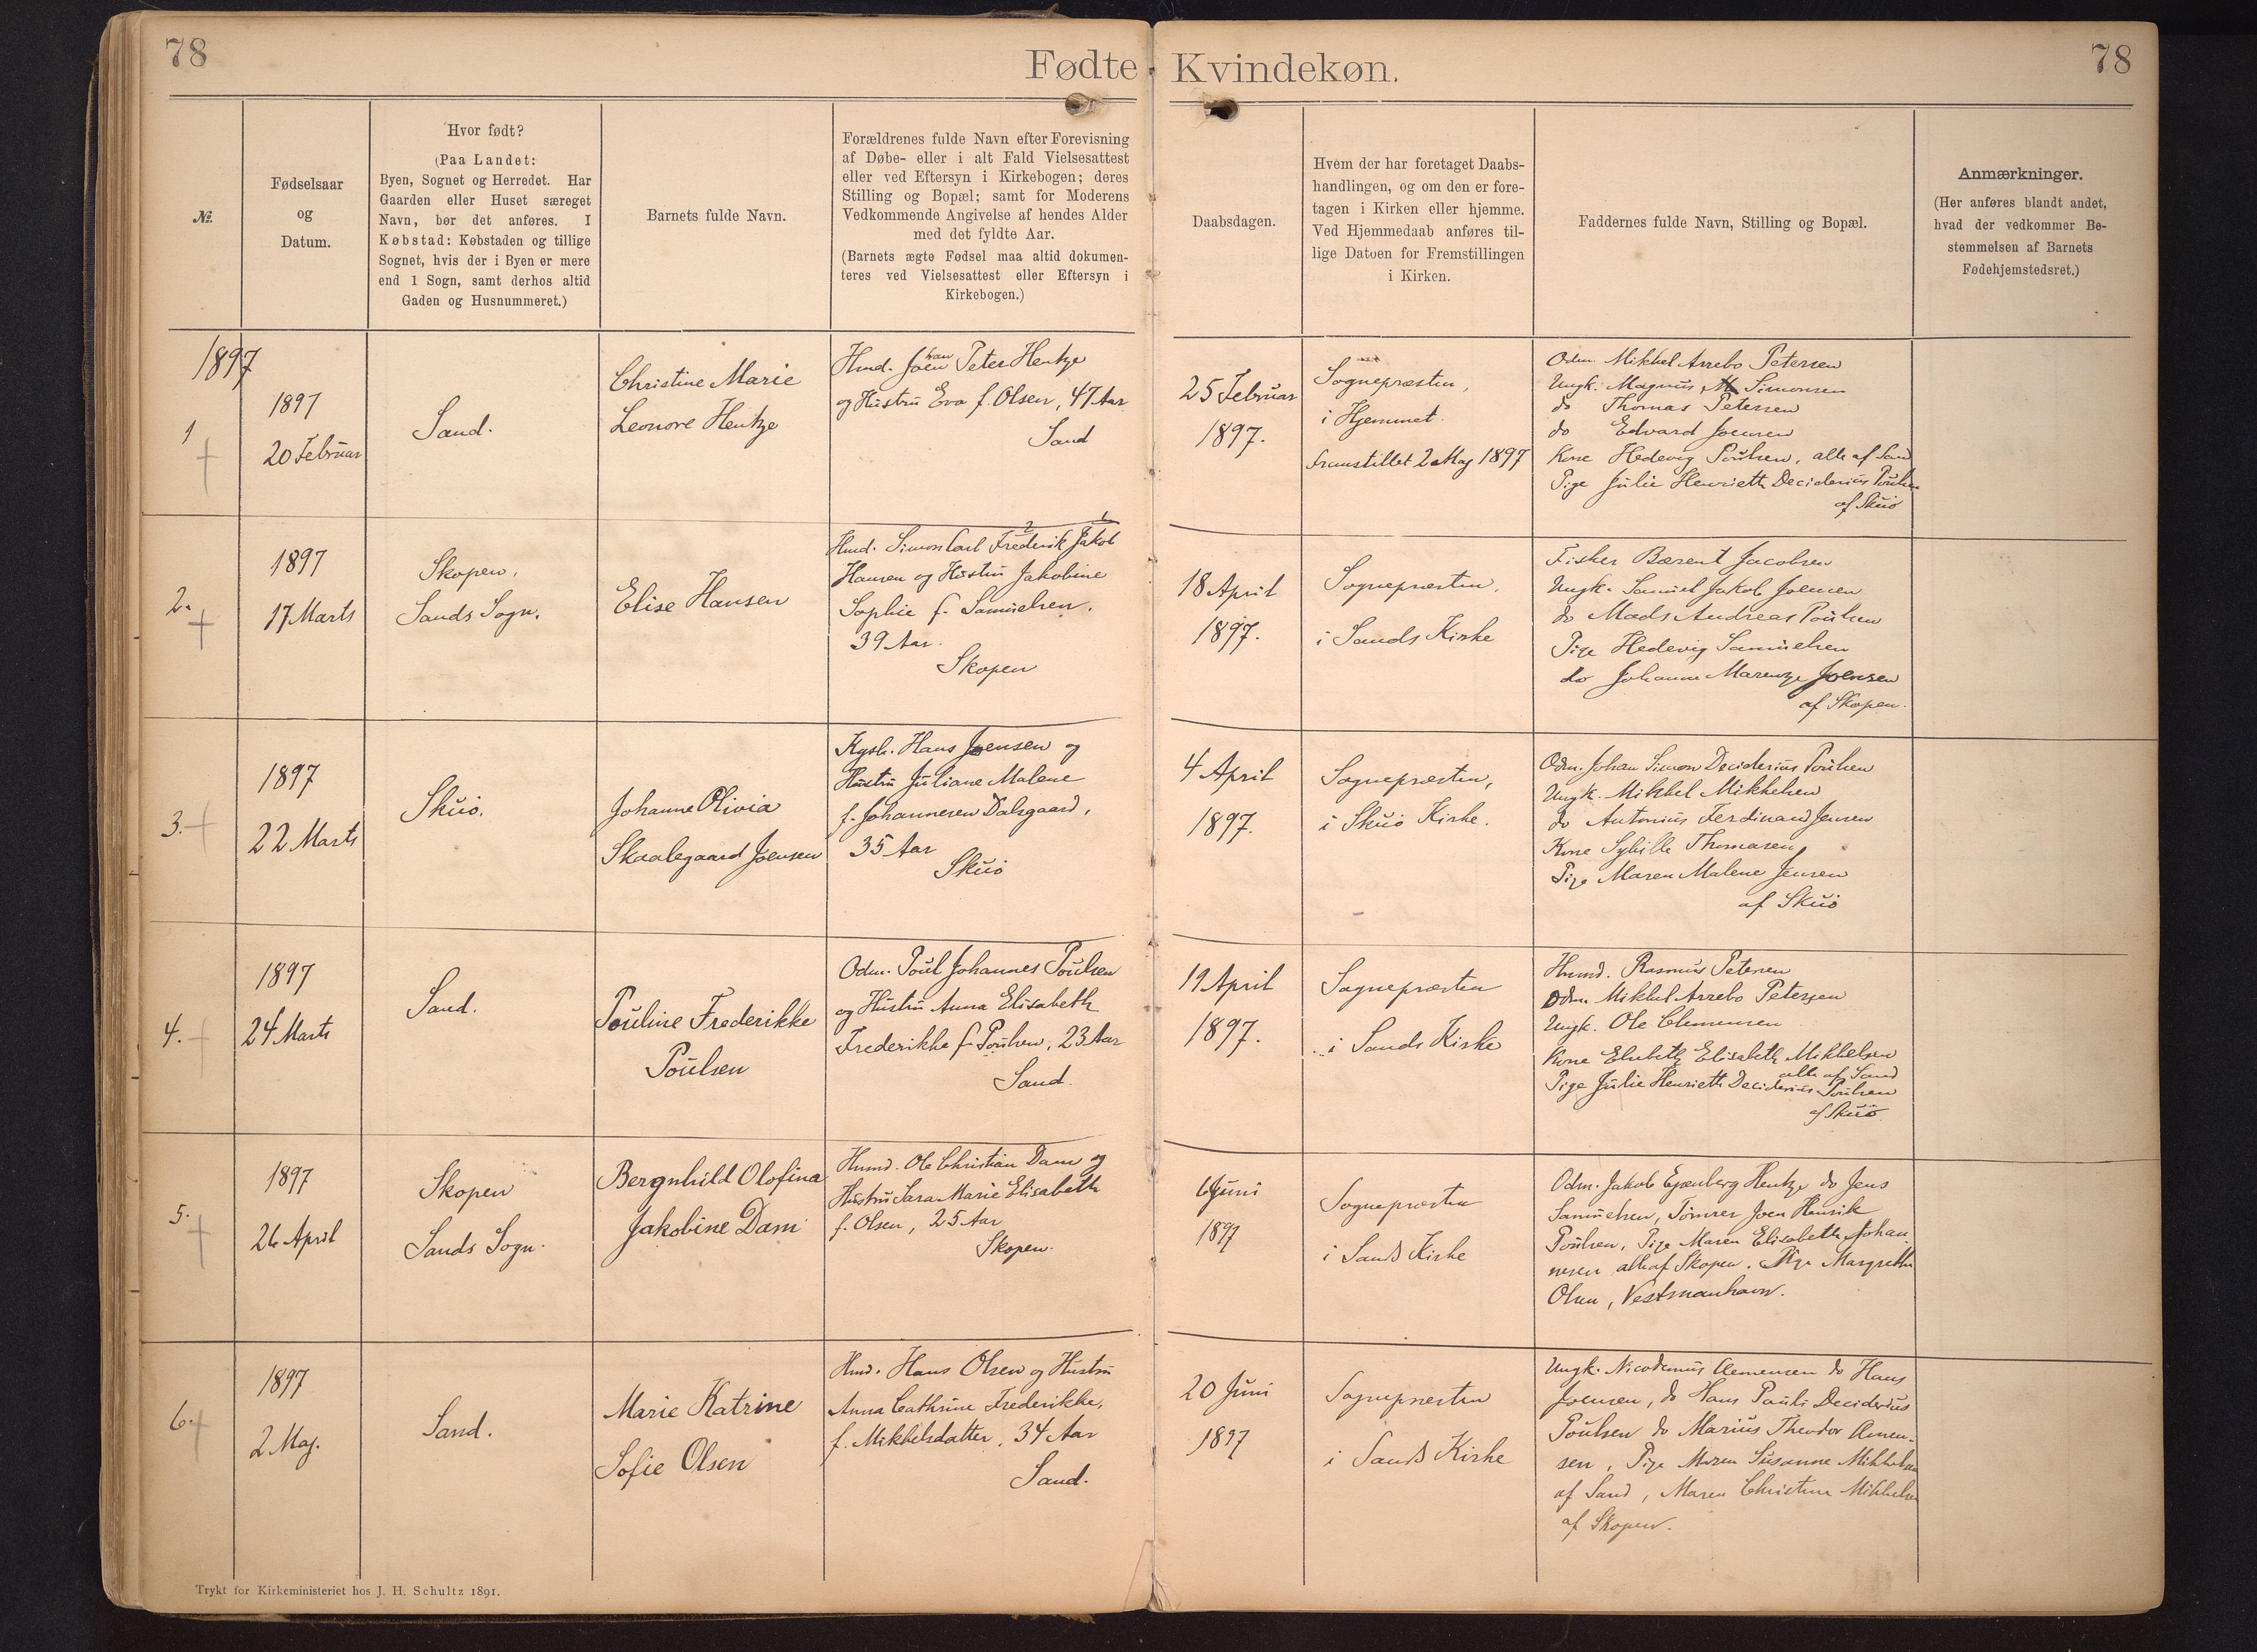 78
Fødte Kvindekøn.
78
№.
Fødselsaar
og
Datum.
Hvor født?
(Paa Landet:
Byen, Sognet og Herredet. Har
Gaarden eller Huset særeget
Navn, bør det anføres. I
Købstad: Købstaden og tillige
Sognet, hvis der i Byen er mere
end 1 Sogn, samt derhos altid
Gaden og Husnummeret.)
Barnets fulde Navn.
Forældrenes fulde Navn efter Forevisning
af Døbe- eller i alt Fald Vielsesattest
eller ved Eftersyn i Kirkebogen; deres
Stilling og Bopæl; samt for Moderens
Vedkommende Angivelse af hendes Alder
med det fyldte Aar.
(Barnets ægte Fødsel maa altid dokumen-
teres ved Vielsesattest eller Eftersyn i
Kirkebogen.)
Daabsdagen.
Hvem der har foretaget Daabs-
handlingen, og om den er fore-
tagen i Kirken eller hjemme.
Ved Hjemmedaab anføres til-
lige Datoen for Fremstillingen
i Kirken.
Faddernes fulde Navn, Stilling og Bopæl.
Anmærkninger.
(Her anføres blandt andet,
hvad der vedkommer Be-
stemmelsen af Barnets
Fødehjemstedsret.)
1897
1
1897
20 Februar
Sand.
Christine Marie
Leonore Hentze
Hmd. Joen Peter Hentze
og Hustru Eva f. Olsen, 47 Aar
Sand
25 Februar
1897.
Sognepræsten,
i Hjemmet.
fremstillet 2 Maj 1897
Odm. Mikkel Arrebo Petersen
Ungk. Magnus Simonsen
do Thomas Petersen
do Edvard Joensen
Kone Hedevig Poulsen, alle af Sand
Pige Julie Henriette Deciderius Poulsen
af Skuö
2.
1897
17 Marts
Skopen,
Sands Sogn.
Elise Hansen
Hmd. Simon Carl Frederik Jakob
Hansen og Hustru Jakobine
Sophie f. Samuelsen,
39 Aar.
Skopen
18 April
1897.
Sognepræsten,
i Sands Kirke
Fisker Bærent Jacobsen
Ungk. Samuel Jakob Joensen
do Mads Andreas Poulsen
Pige Hedevig Samuelsen
do Johanne Marentze Joensen
af Skopen.
3.
1897
22 Marts
Skuö.
Johanne Olivia
Skaalegaard Joensen
Kgsb. Hans Joensen og
Hustru Juliane Malene
f. Johannesen Dalsgaard,
35 Aar
Skuö
4 April
1897.
Sognepræsten,
i Skuö Kirke.
Odm. Johan Simon Deciderius Poulsen
Ungk. Mikkel Mikkelsen
do Antonius Ferdinand Jensen
Kone Sybille Thomasen
Pige Maren Malene Jensen
af Skuö
4.
1897
24 Marts
Sand.
Pouline Frederikke
Poulsen
Odm. Poul Johannes Poulsen
og Hustru Anna Elisabeth
Frederikke f. Poulsen, 23 Aar
Sand.
19 April
1897.
Sognepræsten
i Sands Kirke
Hmd. Rasmus Petersen
Odm. Mikkel Arrebo Petersen
Ungk. Ole Clemensen
Kone Elsebeth Elisabeth Mikkelsen
alle af Sand
Pige Julie Henriette Deciderius Poulsen
af Skuö.
5.
1897
26 April
Skopen
Sands Sogn.
Bergnhild Olofina
Jakobine Dam
Hmd. Ole Christian Dam og
Hustru Sara Marie Elisabeth
f. Olsen, 25 Aar
Skopen.
6 Juni
1897
Sognepræsten
i Sands Kirke
Odm. Jakob Hentze do Jens
Samuelsen, Tömrer Joen Henrik
Poulsen, Pige Maren Elisabeth Johan-
nesen alle af Skopen. Pige Margrethe
Olsen, Vestmanhavn.
6.
1897
2 Maj.
Sand.
Marie Katrine
Sofie Olsen
Hmd. Hans Olsen og Hustru
Anna Cathrine Frederikke,
f. Mikkelsdatter, 34 Aar
Sand.
20 Juni
1897
Sognepræsten
i Sands Kirke
Ungk. Nicodemus Clemensen do Hans
Joensen, do Hans Pauli Deciderius
Poulsen do Marius Theodor Clemen-
sen, Pige Maren Susanne Mikkelsen
af Sand, Maren Christine Mikkelsen
af Skopen.
Trykt for Kirkeministeriet hos J. H. Schultz 1891.